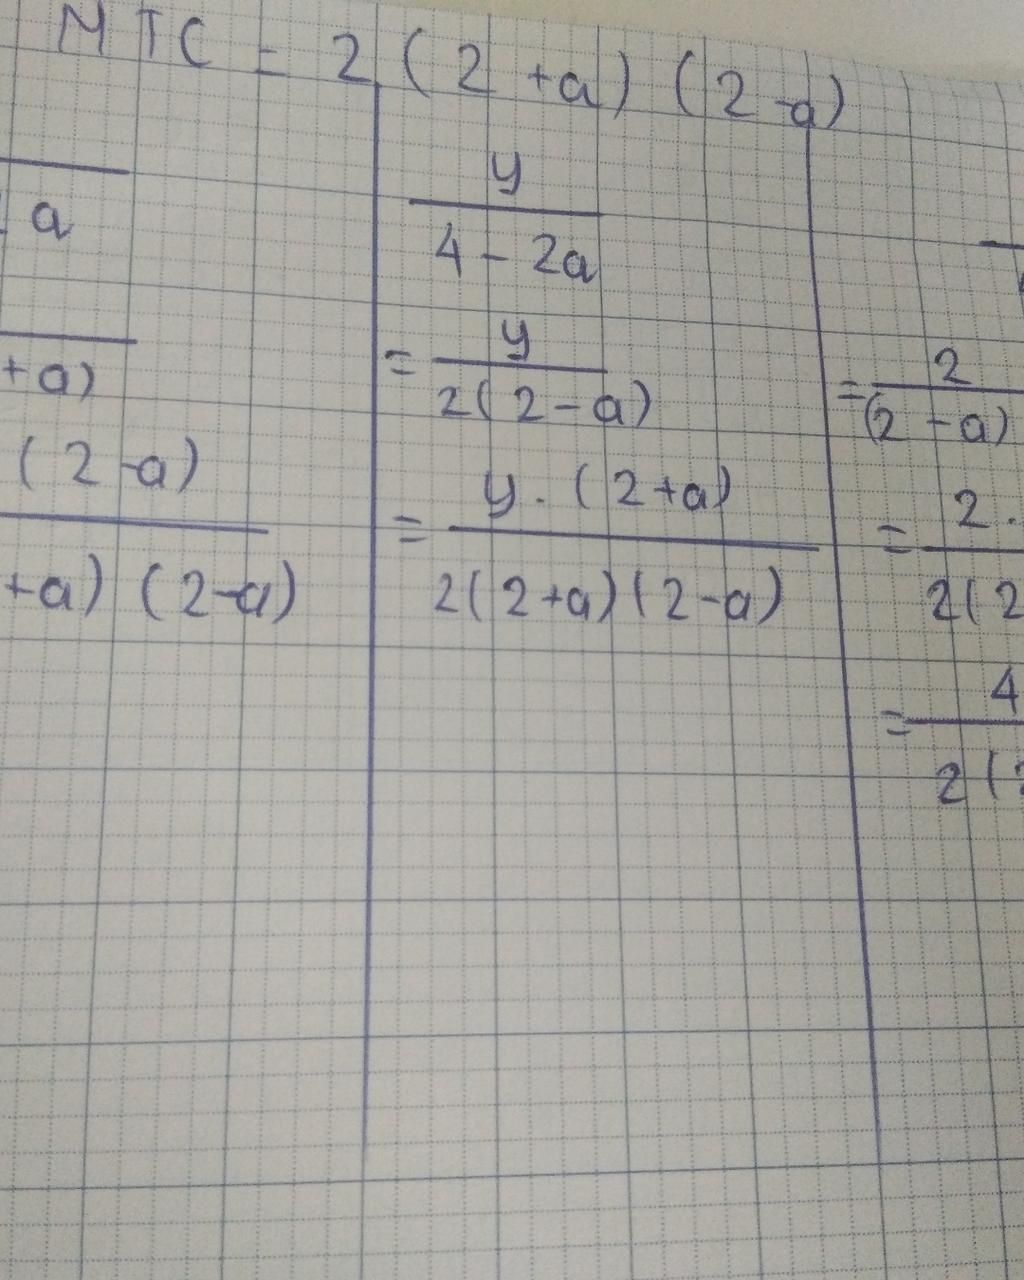 MTC = 2 (2 + a) (2 - a)
a
+ a)
(2 - a)
+ a) (2 - a)
y
4 - 2a
= y
2(2 - a)
= y . (2 + a)
2(2 + a)(2 - a)
= 2
(2 - a)
= 2 .
2(2
= 4
2(